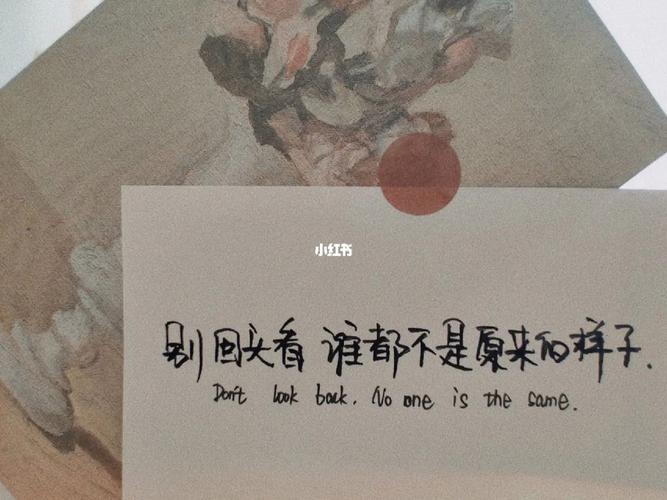 小红书
别回头看 谁都不是原来的样子.
Don't look back. No one is the same.